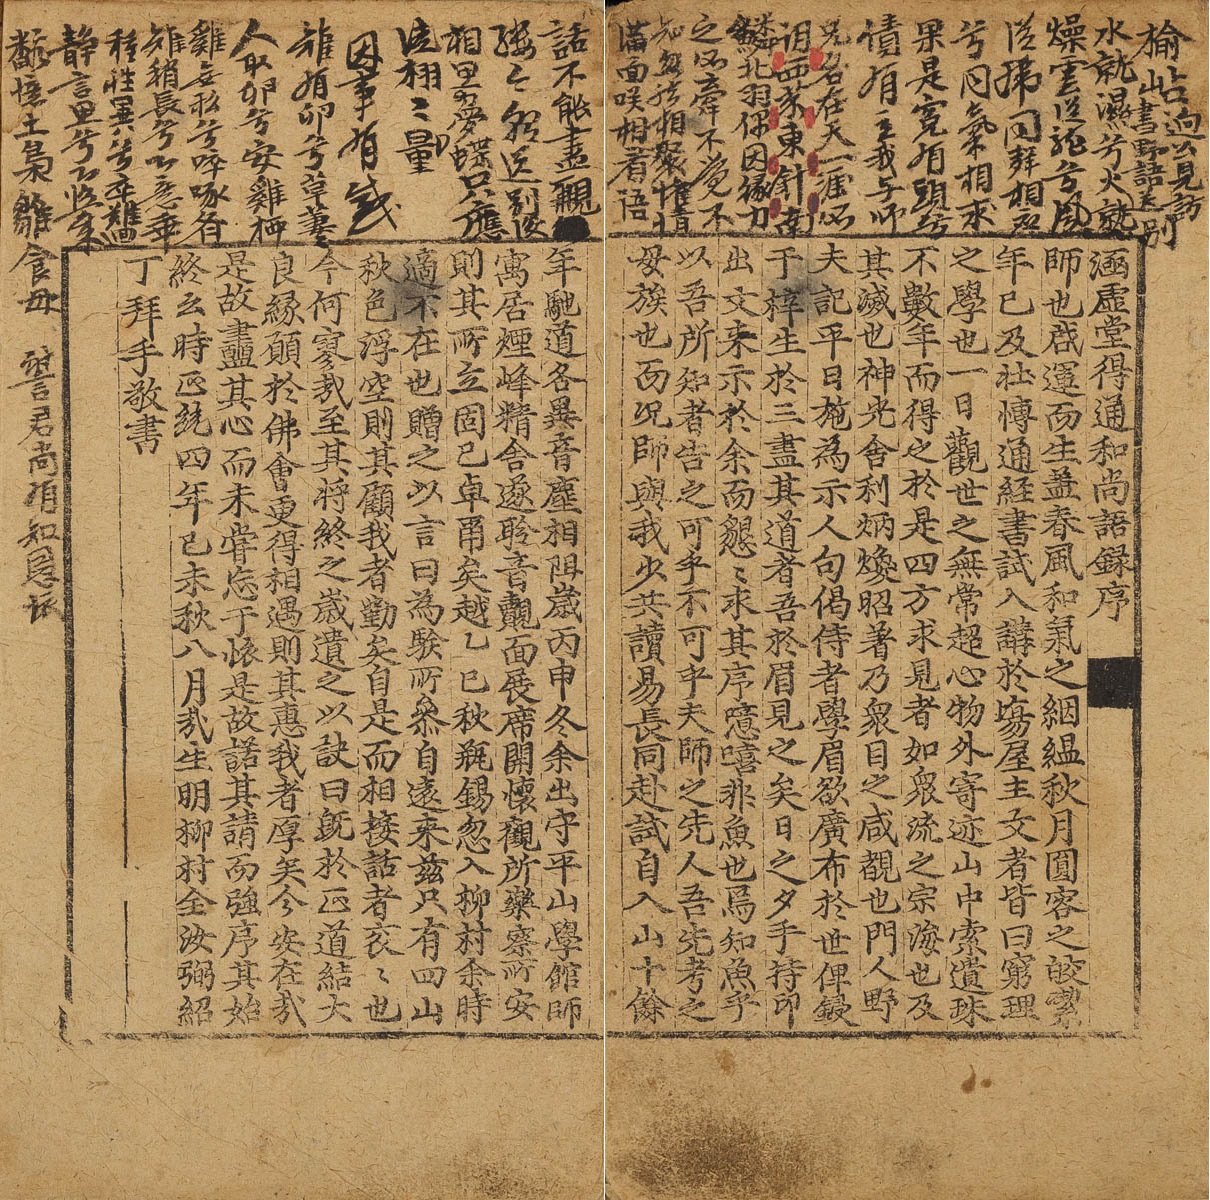 榆岾迥公見訪
山書野語送別
水就濕兮火就
燥雲從龍兮風
從席同群相召
兮同氣相求
果是寃有頭兮
債有主我与师
名在天一涯所
謂西家東針南
鱗北羽偶因緣力
之所牽不覺不
知忽然相聚堆情
滿面咲相看語
涵虛堂得通和尚語録序
師也啓運而生盖春風和氣之絪緼秋月圓容之皎㓗
年已及壯慱通經書試入講於塲屋主文者皆曰窮理
之學也一日觀世之無常超心物外寄迹山中索遺珠
不數年而得之於是四方求見者如衆流之宗海也及
其滅也神光舍利炳煥昭著乃衆目之咸覩也門人野
夫記平日施為示人句偈侍者學眉欲廣布於世俾鋟
于梓生於三盡其道者吾於眉見之矣日之夕手持印
出文来示於余而懇〻求其序噫嘻非魚也焉知魚乎
以吾所知者告之可乎不可乎夫師之先人吾先考之
母族也而况師與我少共讀易長同赴試自入山十餘
話不能盡觀
相思夢蝶只應
流栩〻量
因事有感
雉有卵兮草萋〻
人取卵兮安雞栖
雞無私兮啐啄
雉稍長兮心意乖
種性異兮乖
静言思兮心悠
翻憶土梟雛食母 尚有知恩
年馳道各異音塵相阻歲丙申冬余出守平山學館師
寓居煙峰精舍遂聆音覿面展席開懷觀所藥察所安
則其所立固已卓甭矣越乙巳秋瓶錫忽入柳村余時
適不在也贈之以言曰為駭所叅自遠来茲只有四山
秋色浮空則其顧我者勤矣自是而相接話者衮〻也
今何寥㦲至其將終之歲遺之以訣曰旣於正道結大
良緣願於佛會更得相遇則其惠我者厚矣今安在㦲
是故盡其心而未甞忘于懷是故諾其請而強序其始
終云時正統四年己未秋八月㦲生明柳村全汝弼紹
丁拜手敬書